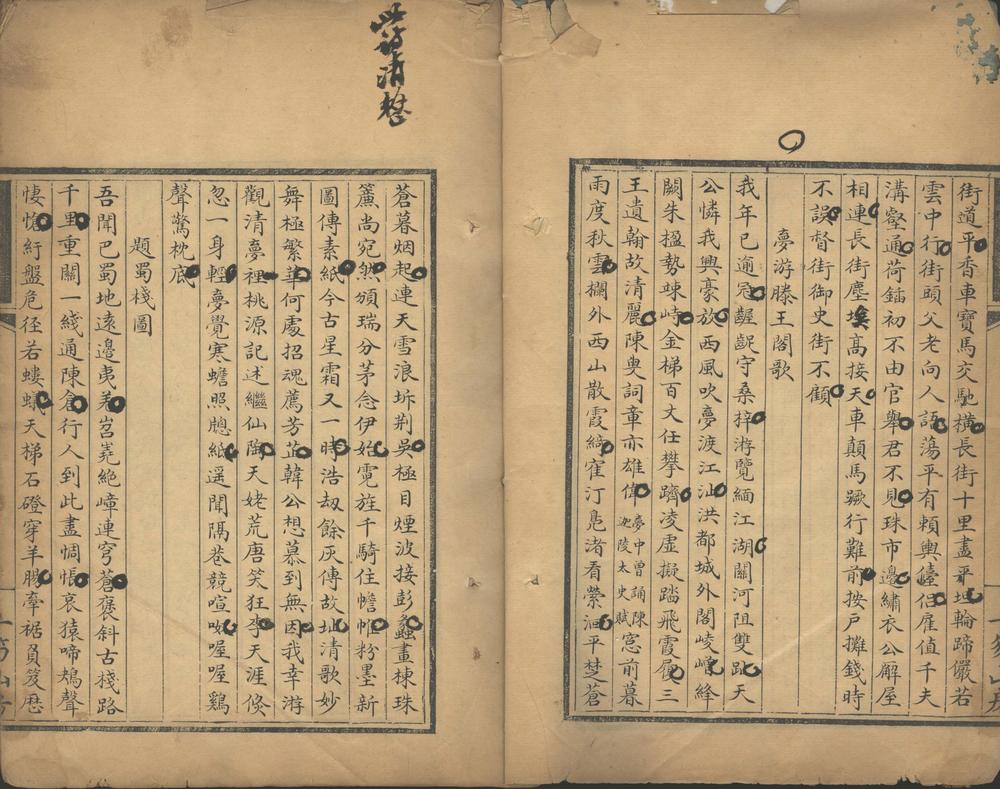 街道平香車寶馬交馳橫長街十里盡平坦輪蹄儼若
雲中行街頭父老向人語蕩平有賴輿儓侶雇值千夫
溝壑通荷鍤初不由官舉君不見珠市邊繡衣公廨屋
相連長街塵埃高接天車顛馬蹶行難前按戶攤錢時
不誤督街御史街不顧
夢游滕王閣歌
我年已逾冠齷齪守桑梓游覽緬江湖關河阻雙趾天
公憐我興豪放西風吹夢渡江汕洪都城外閣崚嶒絳
闕朱楹勢竦峙金梯百丈任攀躋凌虛擬踏飛霞屐三
王遺翰故清麗陳叟詞章亦雄偉夢中曾誦陳迦陵太史賦窓前暮
雨度秋雲欄外西山散霞綺寉汀鳧渚看縈洄平楚蒼
蒼暮烟起連天雪浪坼荆吳極目煙波接彭蠡畫棟珠
簾尚宛然頒瑞分茅念伊始霓旌千騎住幨帷粉墨新
圖傳素紙今古星霜又一時浩劫餘灰傳故址清歌妙
舞極繁華何處招魂薦芳芷韓公想慕到無因我幸游
觀清夢裡桃源記述繼仙陶天姥荒唐笑狂李天涯倏
忽一身輕夢覺寒蟾照牕紙遥聞隔巷競喧呶喔喔鷄
聲驚枕底
題蜀棧圖
吾聞巴蜀地遠邊夷羌岧嶤絶嶂連穹蒼褒斜古棧路
千里重關一綫通陳倉行人到此盡惆悵哀猿啼鴂聲
悽愴紆盤危徑若螻蟻天梯石磴穿羊腸牽裾負笈歷